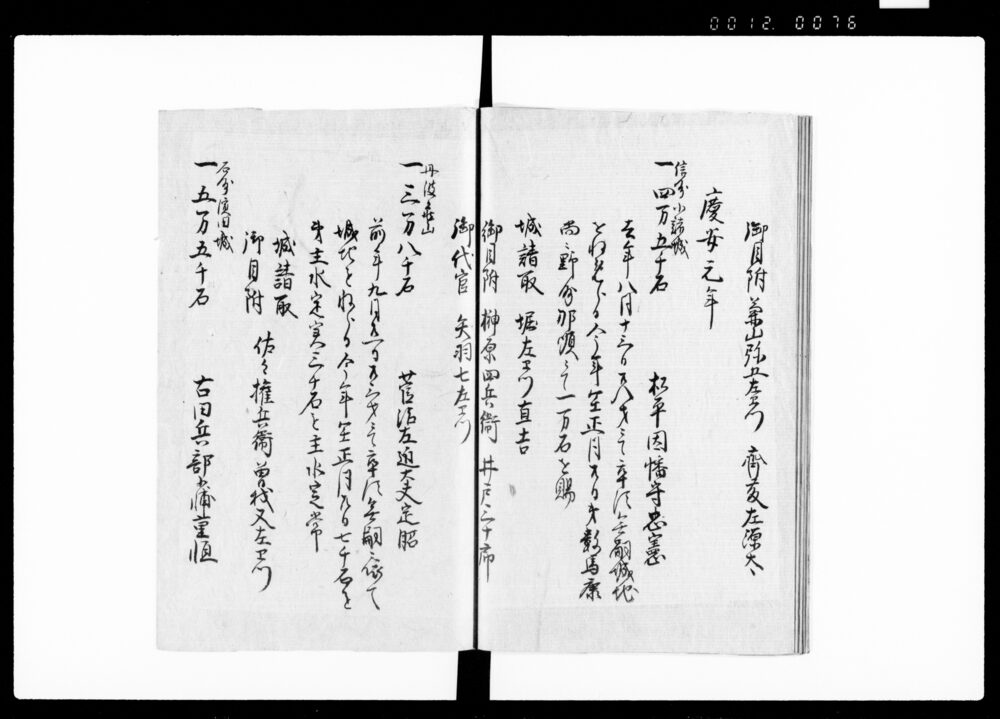 0012. 0076
御目附 兼山弥五左衛門 齊藤左源太
慶安元年
信州小諸城
一四万五千石 松平因幡守忠憲
去年八月十三日 卒ス無嗣城地
今年 正月 日弟数馬康
尚ニ野州那須ニて一万石を賜
城請取 堀左衛門直吉
御目附 榊原四兵衛 井戸三十郎
御代官 矢羽七左衛門
丹波亀山
一三万八千石 菅沼左近大夫定昭
前年九月 卒ス無嗣ニ依て
城地を 今年 正月 日七千石を
弟主水定実三千石を主水定常
城請取
御目附 佐々権兵衛 曽我又左衛門
石州濱田城
一五万五千石 古田兵部少輔重恒